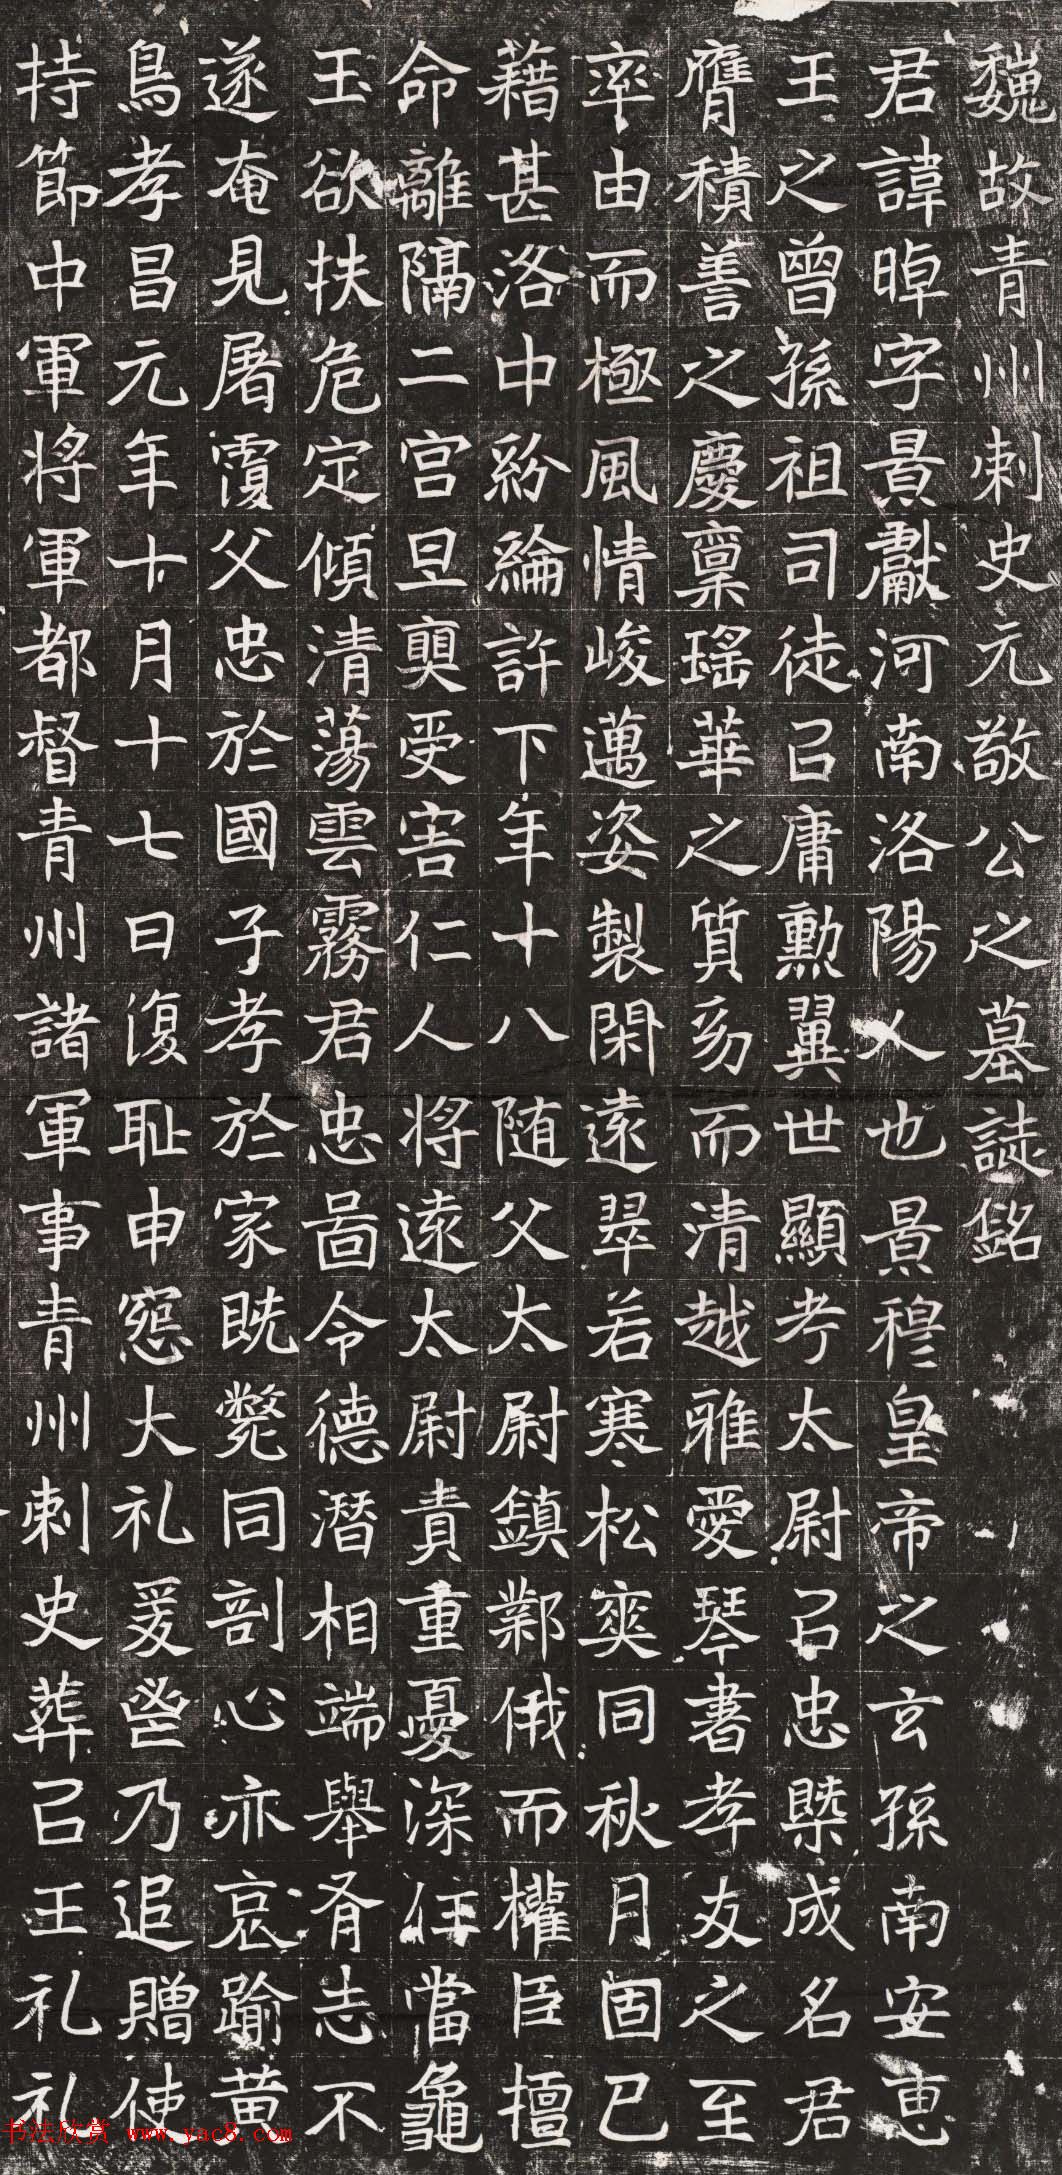 魏故青州刺史元敬公之墓誌銘
君諱暐字景獻河南洛陽人也景穆皇帝之玄孫南安惠
王之曾孫祖司徒㠯庸勳翼世顯考太尉㠯忠槩成名君
膺積善之慶稟瑤華之質㓜而清越雅愛琴書孝友之至
率由而極風情峻邁姿製閑遠翠若寒松奭同秋月固已
藉甚洛中紛綸許下年十八随父太尉鎮鄴俄而權臣擅
命離隔二宮旦奭受害仁人將遠太尉責重憂深任當龜
玉欲扶危定傾清蕩雲霧君忠啚令德潛相端舉胥志不
遂奄見屠覆父忠於國子孝於家既斃同剖心亦哀踰黄
鳥孝昌元年十月十七日復恥申寃大礼爰營乃追贈使
持節中軍將軍都督青州諸軍事青州刺史葬㠯王礼礼
书法欣赏 www.yac8.com